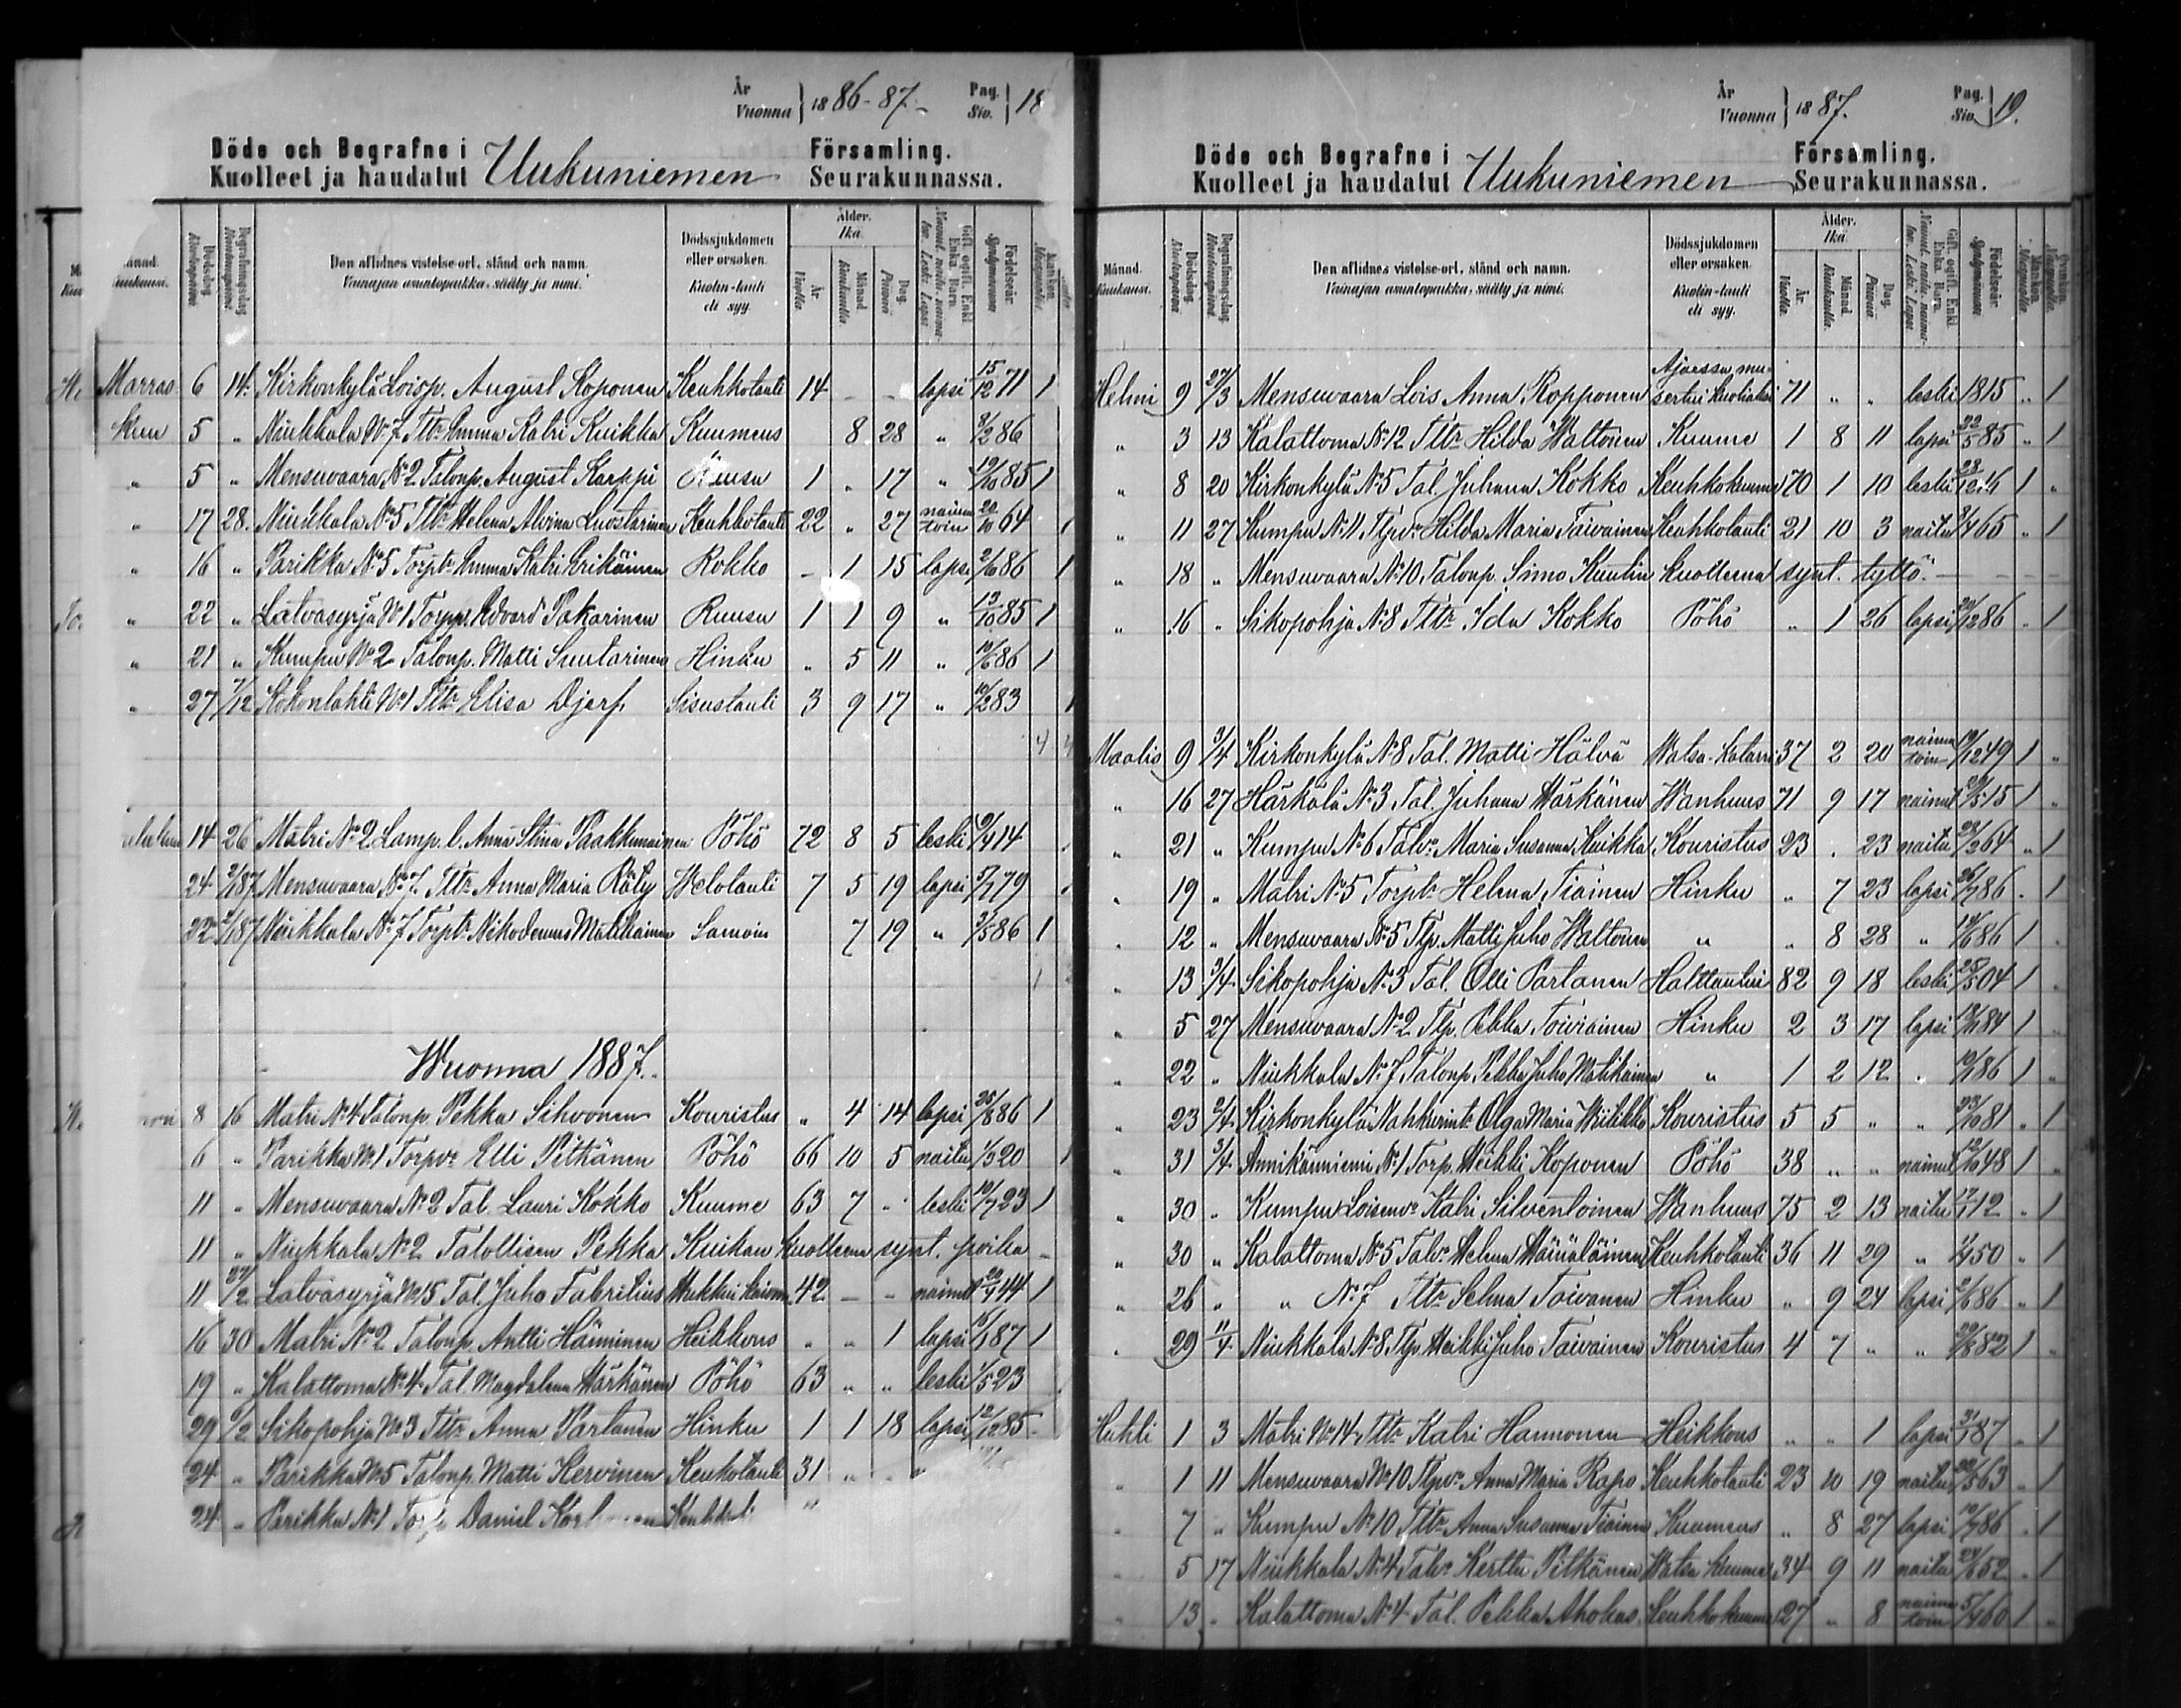 År Vuonna } 1886-87. Pag. Siv. } 18
Döde och Begrafne i Kuolleet ja haudatut Uukuniemen Församling. Seurakunnassa.
Dödsdag. Kuolinpäivä Begrafningsdag Hautauspäivä Den aflidnes vistelse-ort, stånd och namn. Vainajan asuntopaikka, sääty ja nimi. Dödssjukdomen eller orsaken. Kuolin-tauti eli syy. Ålder. Ikä. År. Vuotta. Månad Kuukautta. Dag. Päivää Gift, ogift, Enkl. Enka, Barn. Födelseår
Marras 6 14. Kirkonkylä Loisp. August Koponen Keuhkotauti 14 - - lapsi 15/12 71 1
kuu 5 " Niukkala No 7 Tltr Emma Katri Kuikka Kuumeus 8 28 " 8/2 86
" 5 " Mensuvaara No 2 Talonp. August Karppi Ruusu 1 " 17 " 19/10 85 1
" 17 28. Niukkala No 5 Tltr Helena Alvina Luostarinen Keuhkotauti 22 " 27 naimatoin 20/10 64 1
" 16 " Parikka No 5 Torptr Emma Katri Erikäinen Rokko - 1 15 lapsi 2/10 86 1
" 22 " Latvasyrjä No 1 Torpp. Edvard Pakarinen Ruusu 1 1 9 " 13/10 85 1
" 21 " Kumpu No 2 Talonp. Matti Suutarinen Hinku " 5 11 " 10/6 86 1
" 27 7/12 Kokonlahti No 1 Tltr Elisa Djerf Sisustauti 3 9 17 " 10/2 83 1
14 26 Matri No 2 Lamp. l. Anna Stina Paakkunainen Pöhö 72 8 5 leski 9/4 14
24 2/1 87 Mensuvaara No 7. Tltr Anna Maria Räty Welotauti 7 5 19 lapsi 5/7 79
22 2/1 87 Niukkala No 7 Torptr Nikodemus Matikainen Samoin 7 19 " 3/5 86 1
Wuonna 1887.
8 16 Matri No 4 Talonp. Pekka Sihvonen Kouristus " 4 14 lapsi 25/8 86 1
6 " Parikka No 1 Torpvr Elli Pitkänen Pöhö 66 10 5 naitu 1/3 20 1
11 " Mensuvaara No 2 Tal. Lauri Kokko Kuume 63 7 " leski 10/7 23 1
11 " Niukkala No 2 Talollisen Pekka Kuikan kuolleena synt. poika
11 27/2 Latvasyrjä No 15 Tal. Juho Fabritius 42 - - nainut 44 1
16 30 Matri No 2 Talonp. Antti Häminen Heikkous " " 1 lapsi 16/1 87 1
19 " Kalattoma No 4 Tal. Magdalena Härkönen Pöhö 63 " " leski 1/5 23
29 6/2 Sikopohja No 3 Tltr Anna Partanen Hinku 1 1 18 lapsi 12/12 85
24 " Parikka No 5 Talonp. Matti Kervinen Keuhkotauti 31 " "
24 " Parikka No 1 Torp. Daniel
År Vuonna } 1887. Pag. Siv. } 19.
Döde och Begrafne i Kuolleet ja haudatut Uukuniemen Församling. Seurakunnassa.
Månad. Kuukausi. Dödsdag. Kuolinpäivä Begrafningsdag Hautauspäivä Den aflidnes vistelse-ort, stånd och namn. Vainajan asuntopaikka, sääty ja nimi. Dödssjukdomen eller orsaken. Kuolin-tauti eli syy. Ålder. Ikä. År. Vuotta. Månad Kuukautta. Dag. Päivää Gift, ogift, Enkl. Enka, Barn. Födelseår Mankön. Qvinkön.
Helmi 9 27/3 Mensuvaara Lois Anna Ropponen Ajaessa mu- 71 " " leski 1815 " 1
" 3 13 Kalattoma No 12 Tltr Hilda Waltonen Kuume 1 8 11 lapsi 22/5 85 " 1
" 8 20 Kirkonkylä No 5 Tal. Juhana Kokko Keuhkokuume 70 1 10 leski 28/12 16 1 "
" 11 27 Kumpu No 11 Tlpvr Hilda Maria Taivainen Keuhkotauti 21 10 3 naitu 8/4 65 " 1
" 18 " Mensuvaara No 10 Talonp. Simo Kuutin kuollena synt. tyttö.
" 16 " Sikopohja No 8 Tltr Ida Kokko Pöhö " 1 26 lapsi 20/12 86 " 1
Maalis 9 3/4 Kirkonkylä No 8 Tal. Matti Hälvä Watsa-katarri 37 2 20 naimatoin 19/12 49 1 "
" 16 27 Härkälä No 3 Tal. Juhana Härkönen Wanhuus 71 9 17 nainut 29/5 15 1 "
" 21 " Kumpu No 6 Talvr Maria Susanna Kuikka Kouristus 23 " 23 naitu 28/2 64 " 1
" 19 " Matri No 5 Torptr Helena Tiainen Hinku " 7 23 lapsi 26/7 86 " 1
" 12 " Mensuvaara No 5 Tlp. Matti Juho Waltonen " " 8 28 " 14/6 86 1 "
" 13 3/4 Sikopohja No 3 Tal. Olli Partanen Halttautui 82 9 18 leski 25/5 04 1 "
" 5 27 Mensuvaara No 2 Tlp. Pekka Toiviainen Hinku 2 3 17 lapsi 18/11 84 1 "
" 22 " Niukkala No 7 Talonp. Pekka Juho Matikainen " 1 2 12 " 10/1 86 1 "
" 23 2/4 Kirkonkylä Nahkurintr Olga Maria Wiitikko Kouristus 5 5 " " 23/10 81 " 1
" 31 3/4 Annikänniemi No 1 Torp. Heikki Koponen Pöhö 38 " " nainut 12/10 48 1 "
" 30 " Kumpu Loisenvr Katri Silventoinen Wanhuus 75 2 13 naitu 17/1 12 " 1
" 30 " Kalattoma No 5 Talvr Helena Hämäläinen Keuhkotauti 36 11 29 " 1/4 50 " 1
" 26 " " No 7 Tltr Selma Toivanen Hinku " 9 24 lapsi 2/6 86 " 1
" 29 11/4 Niukkala No 8 Tlp. Heikki Juho Taivainen Kouristus 4 7 " " 29/8 82 1 "
Huhti 1 3 Matri No 14 Tltr Katri Hannonen Heikkous " " 1 lapsi 31/3 87 " 1
" 1 11 Mensuvaara No 10 Tlpvr Anna Maria Rapo Keuhkotauti 23 10 19 naitu 63 " 1
" 7 " Kumpu No 10 Tltr Anna Susanna Tiainen Kuumeus " 8 27 lapsi 10/7 86 " 1
" 5 17 Niukkala No 4 Talvr Kerttu Pitkänen Watsa kuume 34 9 11 naitu 24/6 52 " 1
" 13 " Kalattoma No 4 Tal. Pekka Ahokas Keuhkokuume 27 " 8 naimatoin 5/4 60 1 "